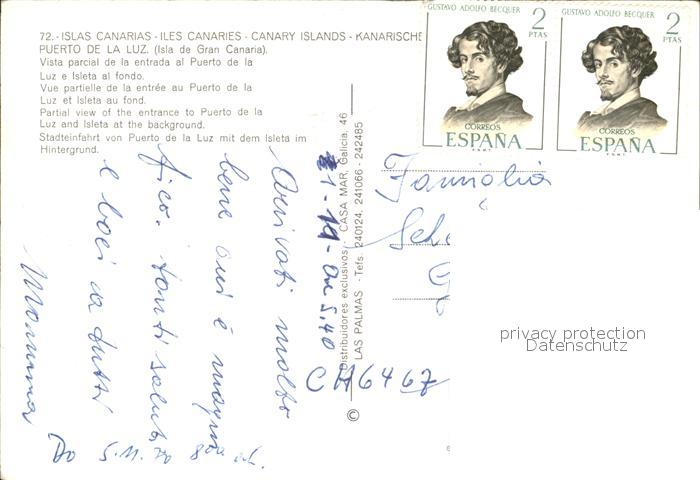 72.- ISLAS CANARIAS - ILES CANARIES - CANARY ISLANDS - KANARISCHE
PUERTO DE LA LUZ. (Isla de Gran Canaria).
Vista parcial de la entrada al Puerto de la
Luz e Isleta al fondo.
Vue partielle de la entrée au Puerto de la
Luz et Isleta au fond.
Partial view of the entrance to Puerto de la
Luz and Isleta at the background.
Stadteinfahrt von Puerto de la Luz mit dem Isleta im
Hintergrund.
GUSTAVO ADOLFO BECQUER
2
PTAS
CORREOS
ESPAÑA
F.N.M.T.
GUSTAVO ADOLFO BECQUER
2
PTAS
CORREOS
ESPAÑA
F.N.M.T.
Distribuidores exclusivos - CASA MAR, Galicia, 46
LAS PALMAS - Tefs. 240124, 241066 - 242485
©
Arrivati molto
bene qui è magni
fico. tanti saluti
e baci a tutti
Mamma
5.11.70
Famiglia
CH6467
privacy protection
Datenschutz